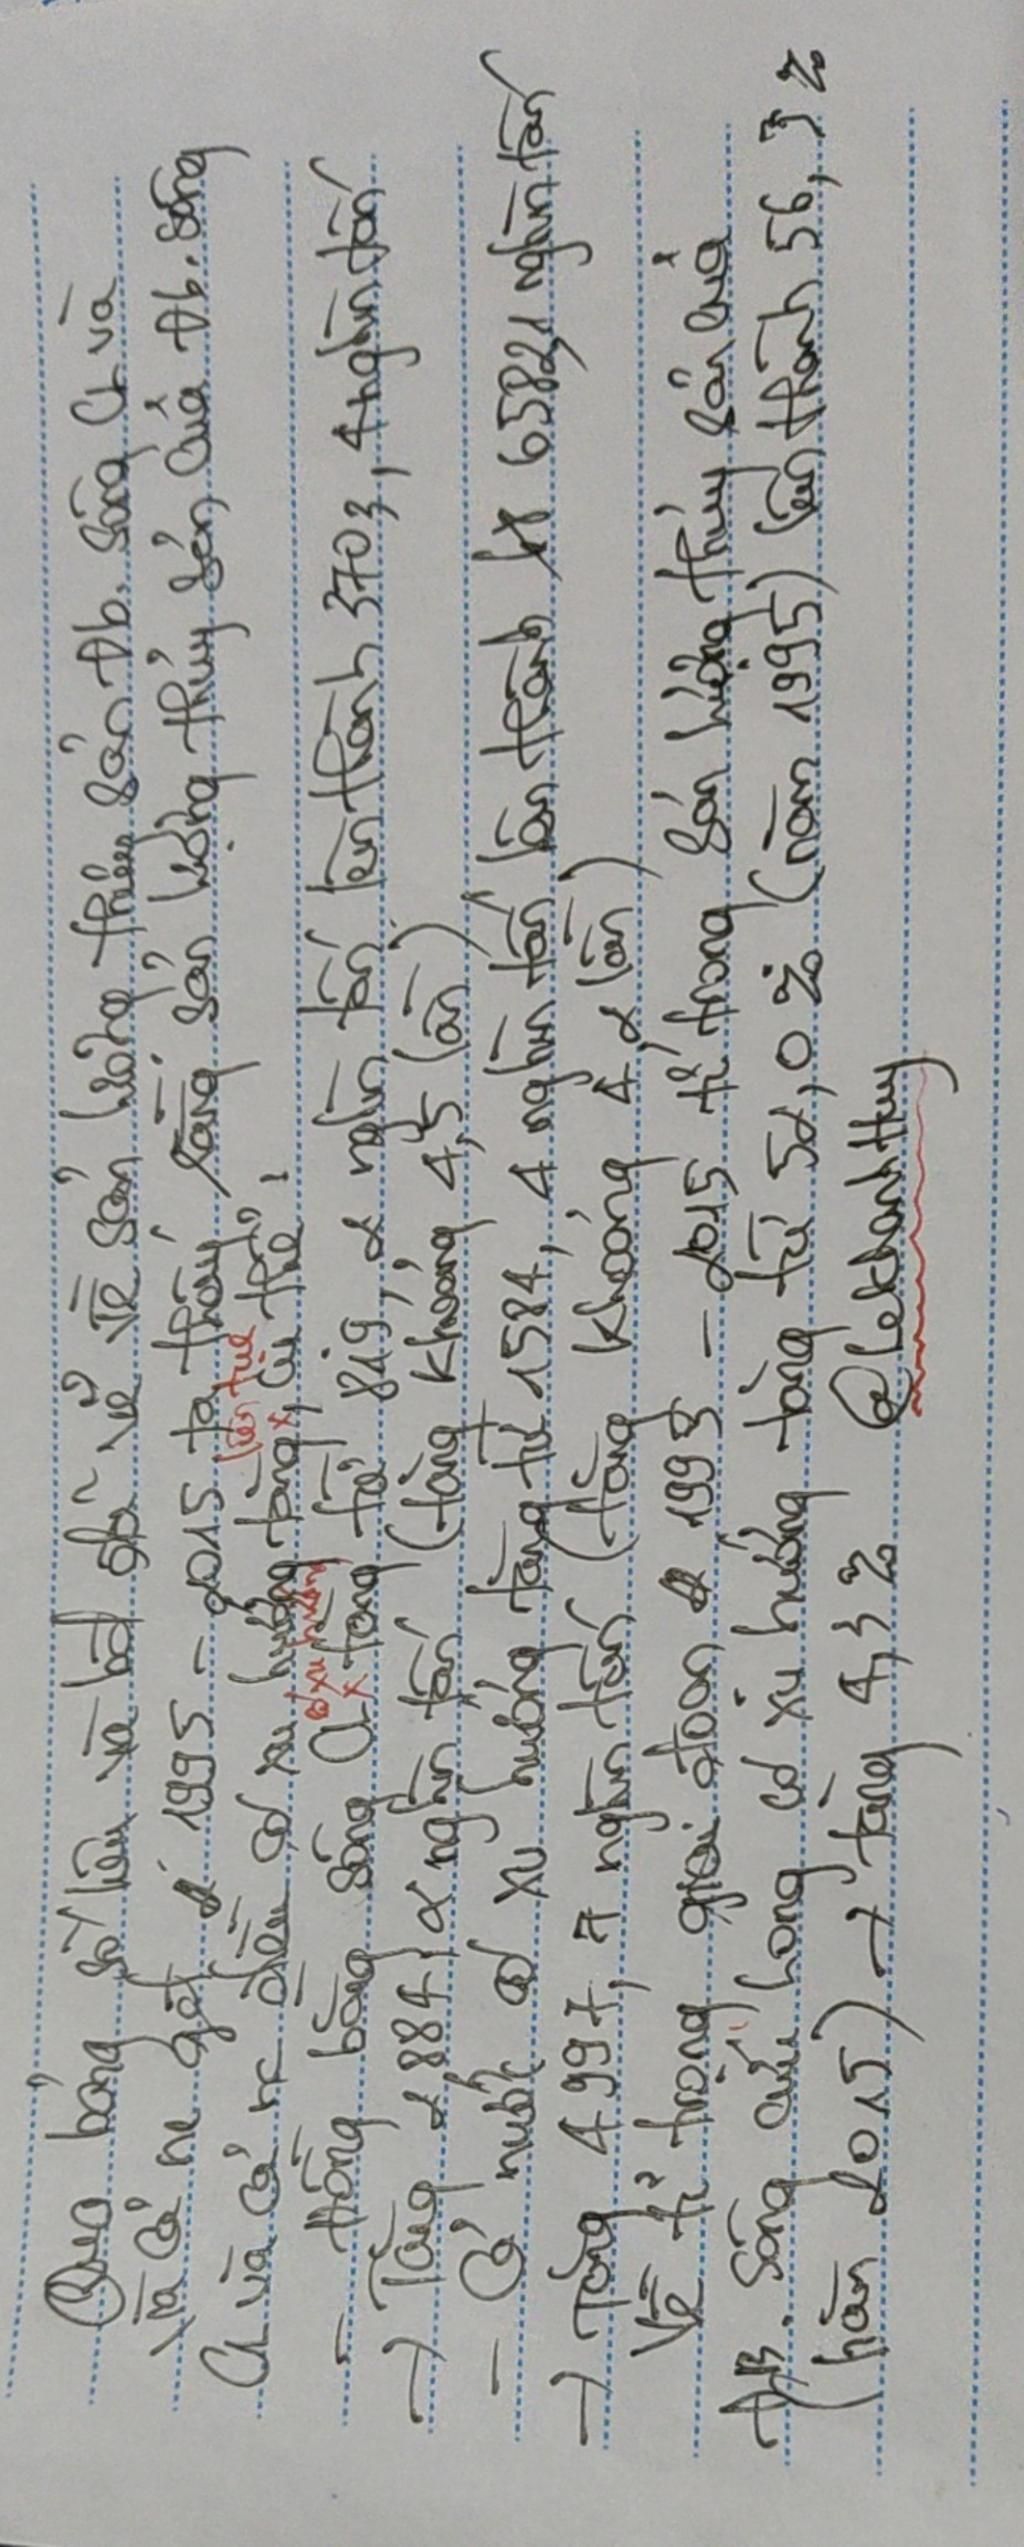 Qua bảng số liệu và bđ đã vẽ về sản lượng thủy sản đb. sông CL và
và cả nc gđ 1995 - 2015 ta thấy rằng sản lượng thủy sản của đb. sông
liên tục
CL và cả nc đều có xu hướng tăng x, cụ thể:
có xu hướng
- Đồng bằng sông CL x tăng từ 819,2 nghìn tấn lên thành 3703,4 nghìn tấn
→ Tăng 2884,2 nghìn tấn (tăng khoảng 4,5 lần)
- Cả nước có xu hướng tăng từ 1584,4 nghìn tấn lên thành 6582,1 nghìn tấn
→ Tăng 4997,7 nghìn tấn (tăng khoảng 4,2 lần)
Về tỉ trọng giai đoạn 1995 - 2015 tỉ trong sản lượng thủy sản của
ĐB. sông cửu long có xu hướng tăng từ 52,0% (năm 1995) lên thành 56,3%
(năm 2015) → tăng 4,3%
@lekhanhHuy